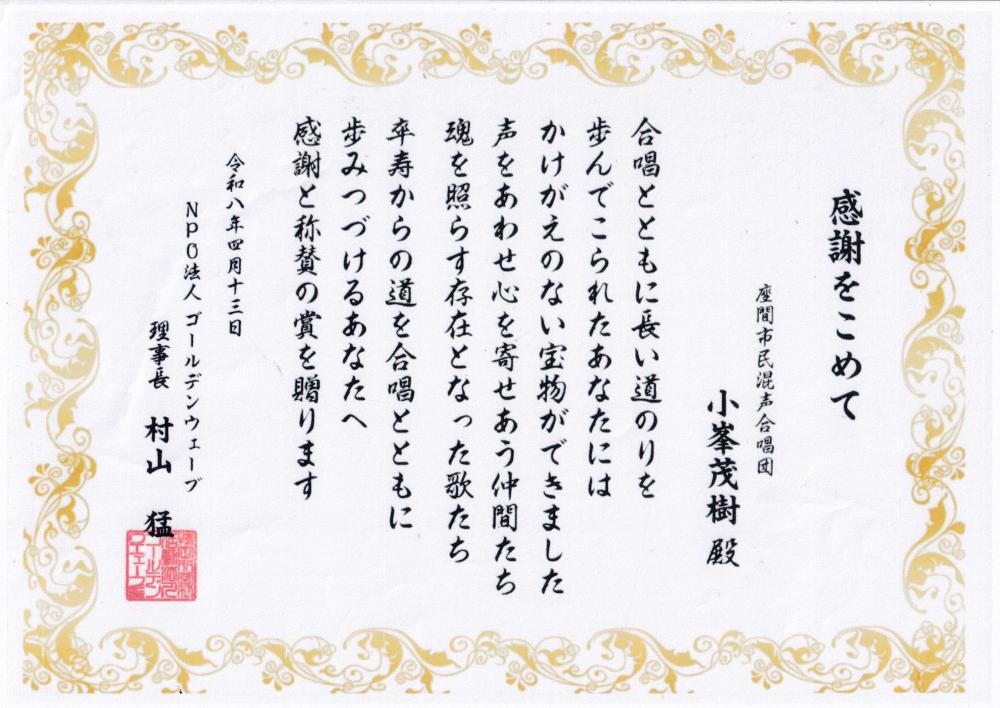 感謝をこめて
座間市民混声合唱団
小峯茂樹 殿
合唱とともに長い道のりを
歩んでこられたあなたには
かけがえのない宝物ができました
声をあわせ心を寄せあう仲間たち
魂を照らす存在となった歌たち
卒寿からの道を合唱とともに
歩みつづけるあなたへ
感謝と称賛の賞を贈ります
令和八年四月十三日
NPO法人 ゴールデンウェーブ
理事長 村山 猛